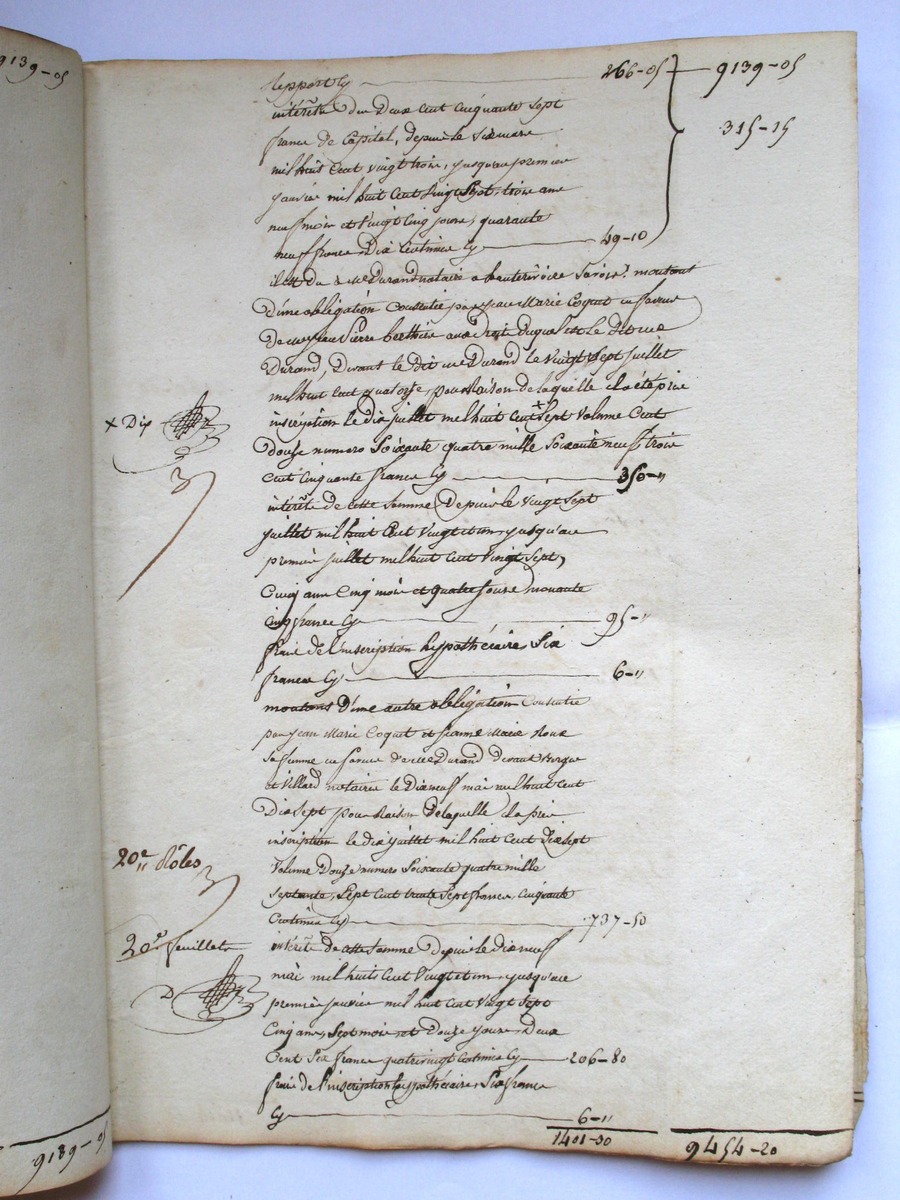 9139-05
Report Cy 266-05 9139-05
intérêts des Deux Cent Cinquante Sept
francs de Capital, depuis le Six mars
mil huit Cent vingt trois, jusqu'au premier
janvier mil huit Cent vingt Sept, trois ans
neuf mois et vingt Cinq jours, quarante
neuf francs Dix Centimes Cy 49-10
315-15
il est du a Me Durand notaire a hauterivoire Savoir. montant
D'une obligation Consentie par jean Marie Coquet en faveur
De Pierre Berthier aux Droits Duquel est le Dit me
Durand, Devant le Dit me Durand le vingt Sept juillet
mil huit Cent quatorze pour Raison de laquelle il a été pris
inscription le dix juillet mil huit Cent x Sept Volume Cent
x Dix
douze numero Soixante quatre mille Soixante neuf, trois
Cent Cinquante francs Cy 350-"
intérêts de cette Somme Depuis le vingt Sept
juillet mil huit Cent vingt et un, jusqu'au
premier juillet mil huit Cent vingt Sept,
Cinq ans Cinq mois et quatre jours nonante
Cinq francs Cy 95-"
frais de l'inscription hypothécaire, Six
francs Cy 6-"
montans D'une autre obligation Consentie
par jean Marie Coquet et jeanne Marie Roux
Sa femme en faveur de Me Durand devant
et Villard notaires le Dix neuf mai mil huit Cent
Dix Sept pour Raison De laquelle il a pris
inscription le dix juillet mil huit Cent Dix Sept
20e Rôles
Volume Douze numero Soixante quatre mille
Septante, Sept Cent trente Sept francs, Cinquante
Centimes Cy 737-50
20e feuillets
intérêts de cette Somme Depuis le dix neuf
mai mil huit Cent vingt et un, jusqu'au
D
premier janvier mil huit Cent vingt Sept
Cinq ans, Sept mois et Douze jours, Deux
Cent Six francs quatre vingt Centimes Cy 206-80
frais de l'inscription hypothécaire, Six francs
Cy 6-"
1401-30 9454-20
9139-05